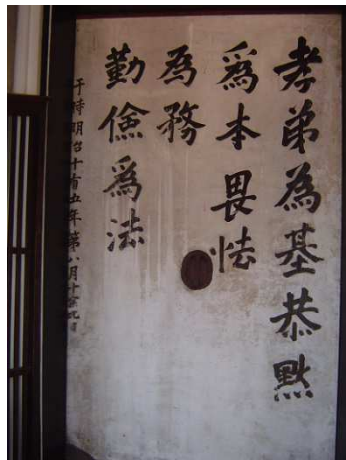 孝弟為基恭黙
爲本畏怯
為務
勤儉爲法
于時明治十有五年第八月十